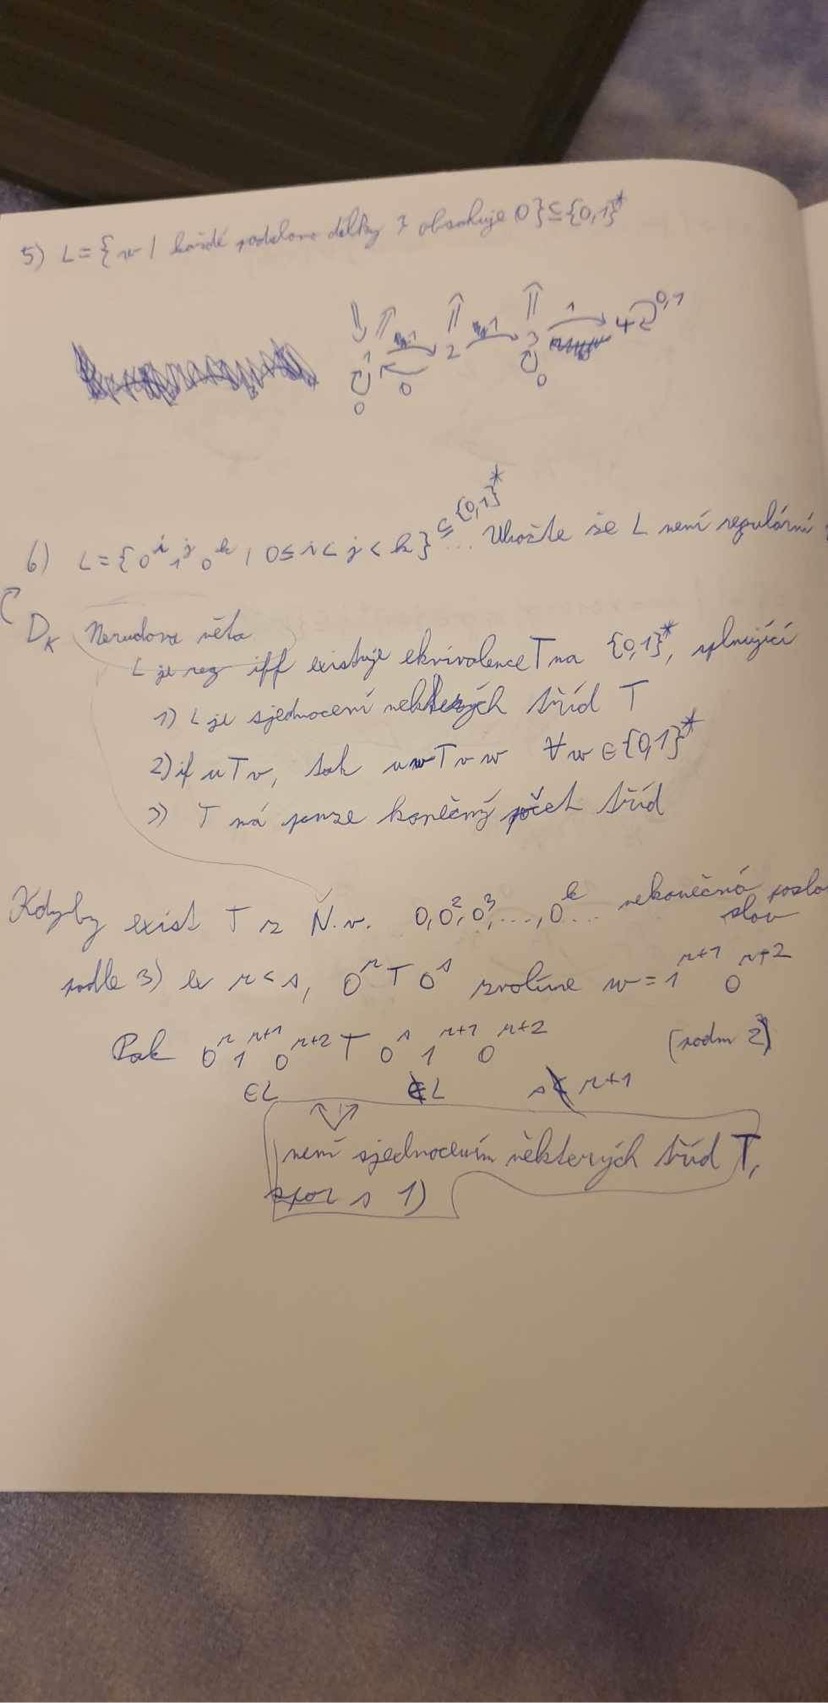 5) L = { w | každé podslovo délky 3 obsahuje 0 } ⊆ {0,1}*
1 0 0 2 1 3 0 1 4 0,1
6) L = { 0^i 1^j 0^k | 0 ≤ i < j < k } ⊆ {0,1}* ... Ukažte že L není regulární
Dk Nerudova věta
L je reg iff existuje ekvivalence T na {0,1}*, splňující
1) L je sjednocení některých tříd T
2) if u T v, tak uw T vw ∀w ∈ {0,1}*
3) T má pouze konečný počet tříd
Kdyby exist T z N.v. 0, 0², 0³, ..., 0^k ... nekonečná poslo
slov
podle 3) ex r < s, 0^r T 0^s zvolíme w = 1^{r+1} 0^{r+2}
Pak 0^r 1^{r+1} 0^{r+2} T 0^s 1^{r+1} 0^{r+2} (podm 2)
∈L ∉L s ≮ r+1
není sjednocením některých tříd T,
spor s 1)